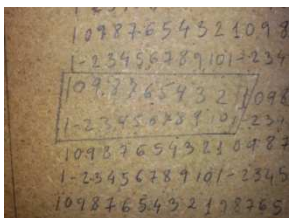 10987654321098
1-2345678910 1-234
109.87654321098
1-2345678910 1-234
1098765432109 87
1-2345678910 1-2345
109876543219 8765